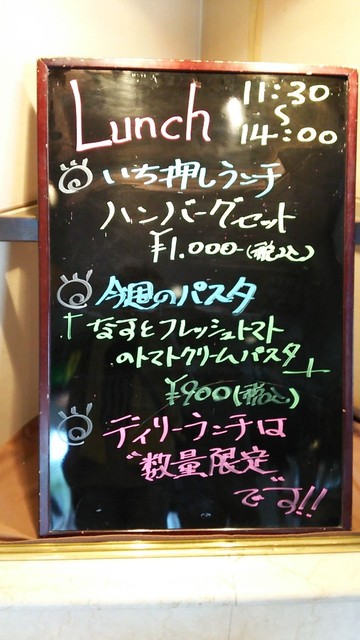 Lunch 11:30
~
14:00
いち押しランチ
ハンバーグセット
¥1.000-(税込)
今週のパスタ
なすとフレッシュトマト
のトマトクリームパスタ
¥900(税込)
ディリーランチは
"数量限定
です!!